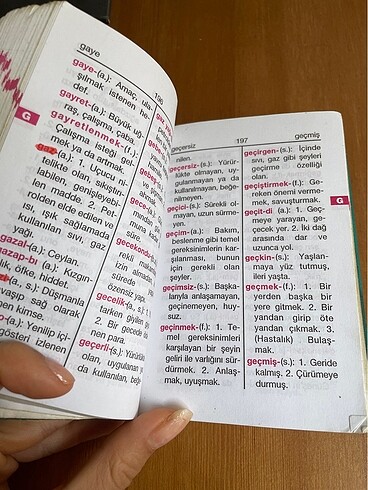 gaye
196
gaye-(a.): Amaç, ula-
şılmak istenen he-
def.
gayret-(a.): Büyük uğ-
raş, çalışma, çaba.
gayretlenmek-(f.):
Çalışma isteği gel-
mek ya da artmak.
G
gaz-(a.): 1. Uçucu ni-
telikte olan, sıkıştırı-
labilen, genişleyebi-
len madde. 2. Pet-
rolden elde edilen ve
ısı, ışık sağlamada
kullanılan sıvı, gaz
yağ.
gazal-(a.): Ceylan.
gazap-(a.): Kızgın-
lık, öfke, hiddet.
(a, s): Düşmanla
vaşıp sağ olarak
nen kimse.
(a.): Yenilip içi-
gösteri izlenen
gecekondu-
rekli makam
izin almadan
sürede
özensiz yapı
gecelik-(a, s): 1.
tarken giyilen gi
2. Bir gecede öde
nen para.
geçerli-(s.): Yürürlükte
olan, uygulanan ya
da kullanılan, beğe
geçersiz
197
geçmiş
nilen.
geçersiz-(s.): Yürür-
lükte olmayan, uy-
gulanmayan ya da
kullanılmayan, beğe-
nilmeyen.
geçici-(s.): Sürekli ol-
mayan, uzun sürme-
yen.
geçim-(a.): Bakım,
beslenme gibi temel
gereksinimlerin kar-
şılanması, bunun
için gerekli olan
şeyler.
geçimsiz-(s.): Başka-
larıyla anlaşamayan,
geçinemeyen, huy-
suz.
geçinmek-(f.): 1. Te-
mel gereksinimleri
karşılayan bir şeyin
geliri ile varlığını sür-
dürmek. 2. Anlaş-
mak, uyuşmak.
geçirgen-(s.): İçinde
sıvı, gaz gibi şeyleri
geçirme özelliği
olan.
geçiştirmek-(f.): Ge-
reken önemi verme-
mek, savuşturmak.
G
geçit-di (a.): 1. Geç-
meye yarayan, ge-
çecek yer. 2. İki dağ
arasında dar ve
uzunca yol.
geçkin-(s.): Yaşlan-
maya yüz tutmuş,
ileri yaşta.
geçmek-(f.): 1. Bir
yerden başka bir
yere gitmek. 2. Bir
yandan girip öte
yandan çıkmak. 3.
(Hastalık) Bulaş-
mak.
geçmiş-(s.): 1. Geride
kalmış. 2. Çürümeye
durmuş.